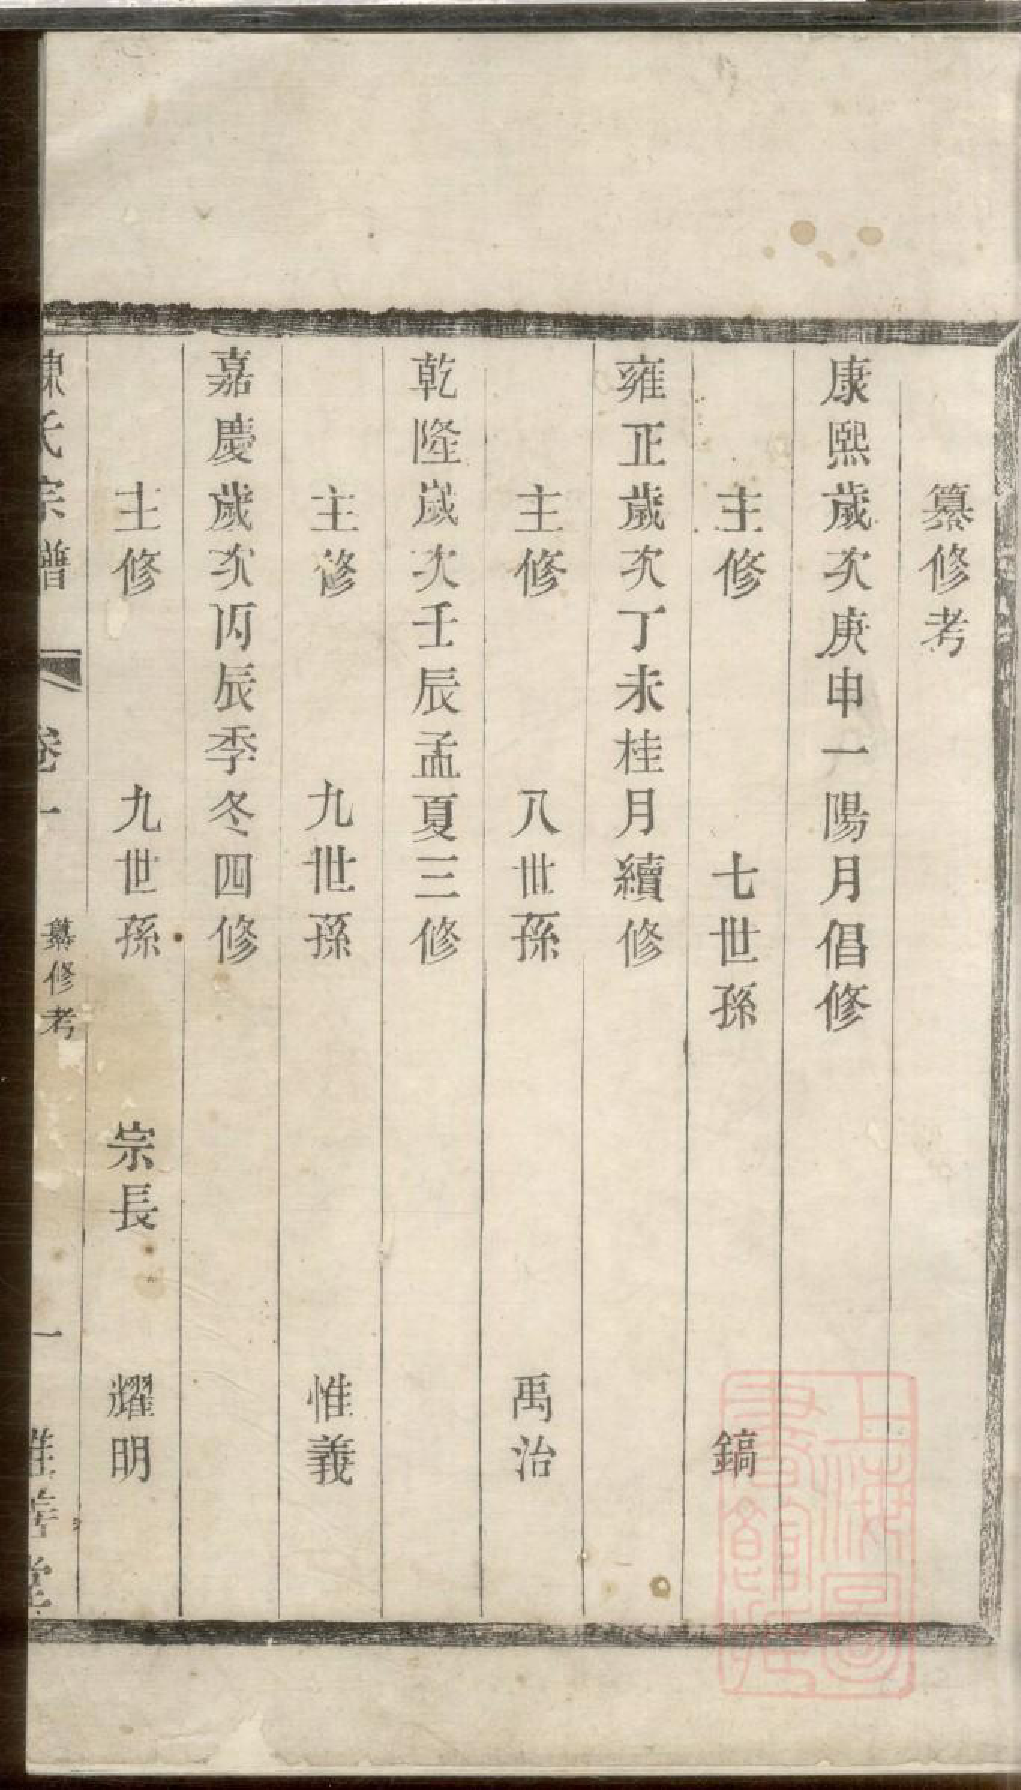 纂修考
康熙歲次庚申一陽月倡修
主修 七世孫 鎬
雍正歲次丁未桂月續修
主修 八世孫 禹治
乾隆歲次壬辰孟夏三修
主修 九世孫 惟義
嘉慶歲次丙辰季冬四修
主修 九世孫 宗長 耀明
陳氏宗譜 卷一 纂修考 一 惟善堂
上海圖書館藏